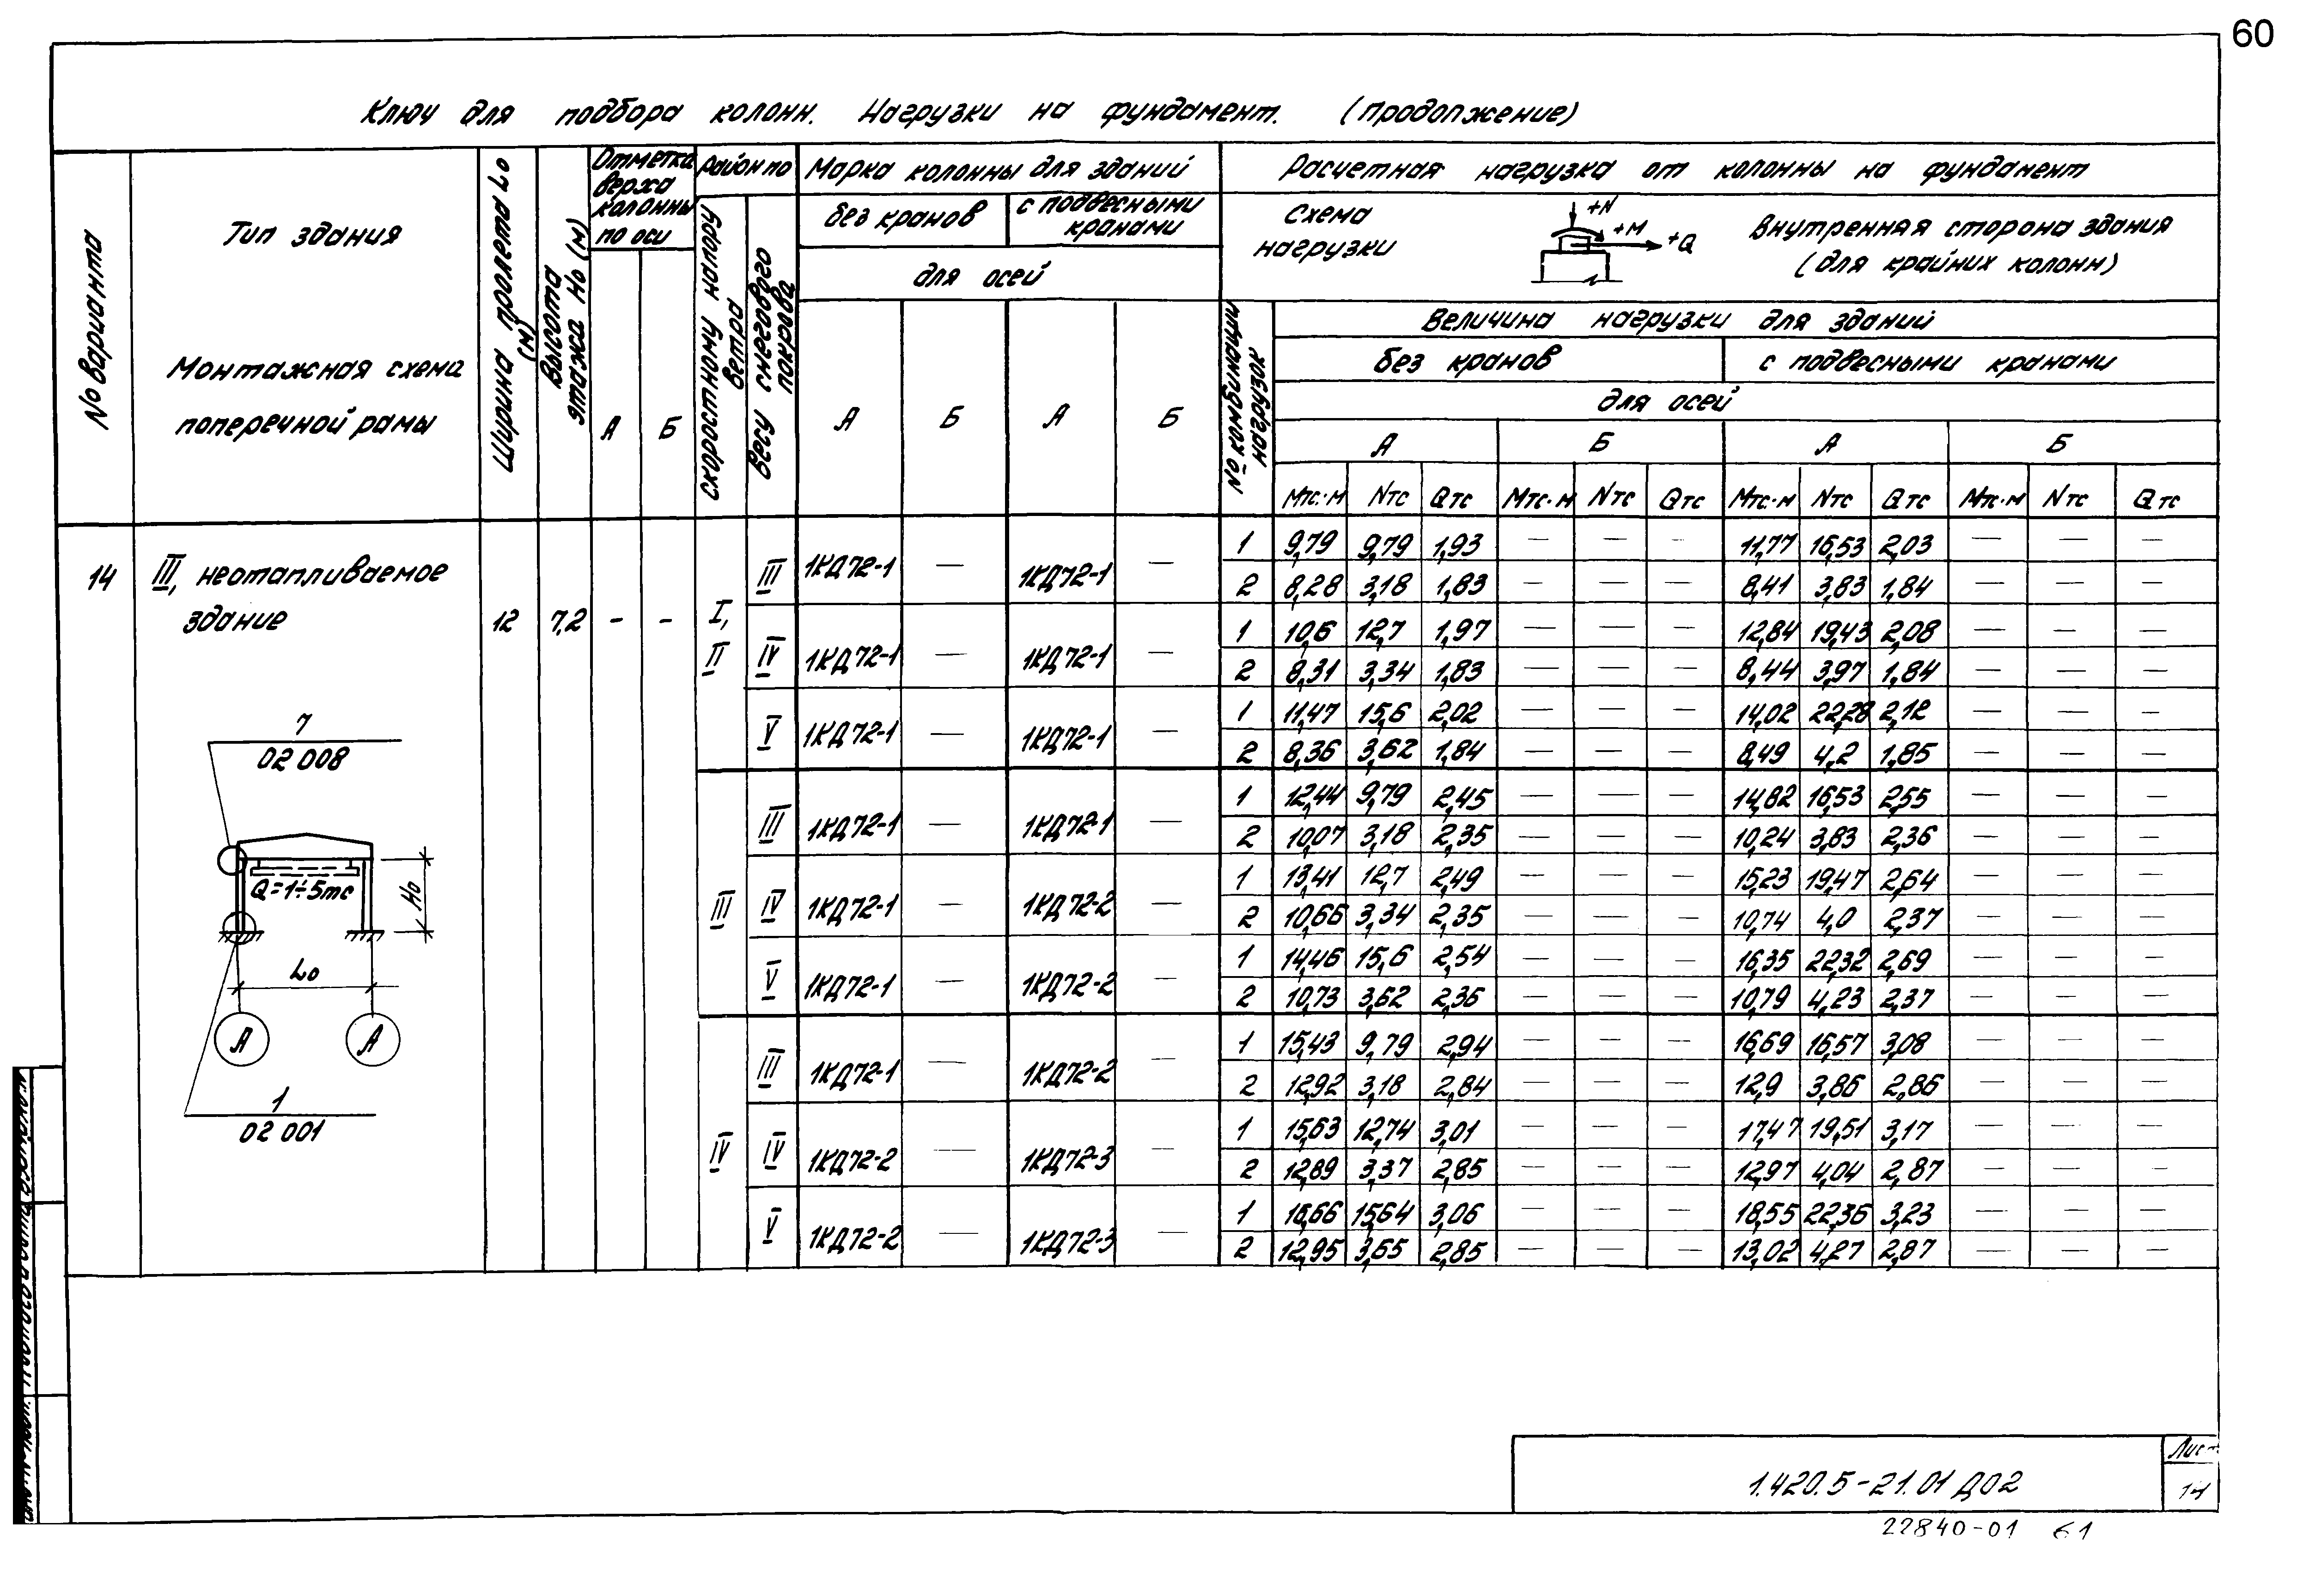 60
Ключ для подбора колонн. Нагрузки на фундамент. (Продолжение)
№ варианта
Тип здания
Монтажная схема
поперечной рамы
Ширина пролета Lo (м)
Высота этажа Но (м)
Отметка верха колонны по оси
А Б
Район по
скоростному напору ветра
весу снегового покрова
Марка колонны для зданий
без кранов
с подвесными кранами
для осей
А Б А Б
Расчетная нагрузка от колонны на фундамент
Схема нагрузки
+N
+M
+Q
Внутренняя сторона здания
(для крайних колонн)
№ комбинации нагрузок
Величина нагрузки для зданий
без кранов с подвесными кранами
для осей
А Б А Б
Мтс·м Nтс Qтс Мтс·м Nтс Qтс Мтс·м Nтс Qтс Мтс·м Nтс Qтс
14 III, неотапливаемое
здание
12 7,2 - -
I, II III 1КД72-1 — 1КД72-1 — 1 9,79 9,79 1,93 — — — 11,77 16,53 2,03 — — —
2 8,28 3,18 1,83 — — — 8,41 3,83 1,84 — — —
IV 1КД72-1 — 1КД72-1 — 1 10,6 12,7 1,97 — — — 12,84 19,43 2,08 — — —
2 8,31 3,34 1,83 — — — 8,44 3,97 1,84 — — —
V 1КД72-1 — 1КД72-1 — 1 11,47 15,6 2,02 — — — 14,02 22,28 2,12 — — —
2 8,36 3,62 1,84 — — — 8,49 4,2 1,85 — — —
III III 1КД72-1 — 1КД72-1 — 1 12,44 9,79 2,45 — — — 14,82 16,53 2,55 — — —
2 10,07 3,18 2,35 — — — 10,24 3,83 2,36 — — —
IV 1КД72-1 — 1КД72-2 — 1 13,41 12,7 2,49 — — — 15,23 19,47 2,64 — — —
2 10,66 3,34 2,35 — — — 10,74 4,0 2,37 — — —
V 1КД72-1 — 1КД72-2 — 1 14,46 15,6 2,54 — — — 16,35 22,32 2,69 — — —
2 10,73 3,62 2,36 — — — 10,79 4,23 2,37 — — —
IV III 1КД72-1 — 1КД72-2 — 1 15,43 9,79 2,94 — — — 16,69 16,57 3,08 — — —
2 12,92 3,18 2,84 — — — 12,9 3,86 2,86 — — —
IV 1КД72-2 — 1КД72-3 — 1 15,63 12,74 3,01 — — — 17,47 19,51 3,17 — — —
2 12,89 3,37 2,85 — — — 12,97 4,04 2,87 — — —
V 1КД72-2 — 1КД72-3 — 1 16,66 15,64 3,06 — — — 18,55 22,36 3,23 — — —
2 12,95 3,65 2,85 — — — 13,02 4,27 2,87 — — —
7
02 008
Q=1÷5тс
Но
Lo
А А
1
02 001
1.420.5-21.01 Д02
Лист
14
22840-01 61